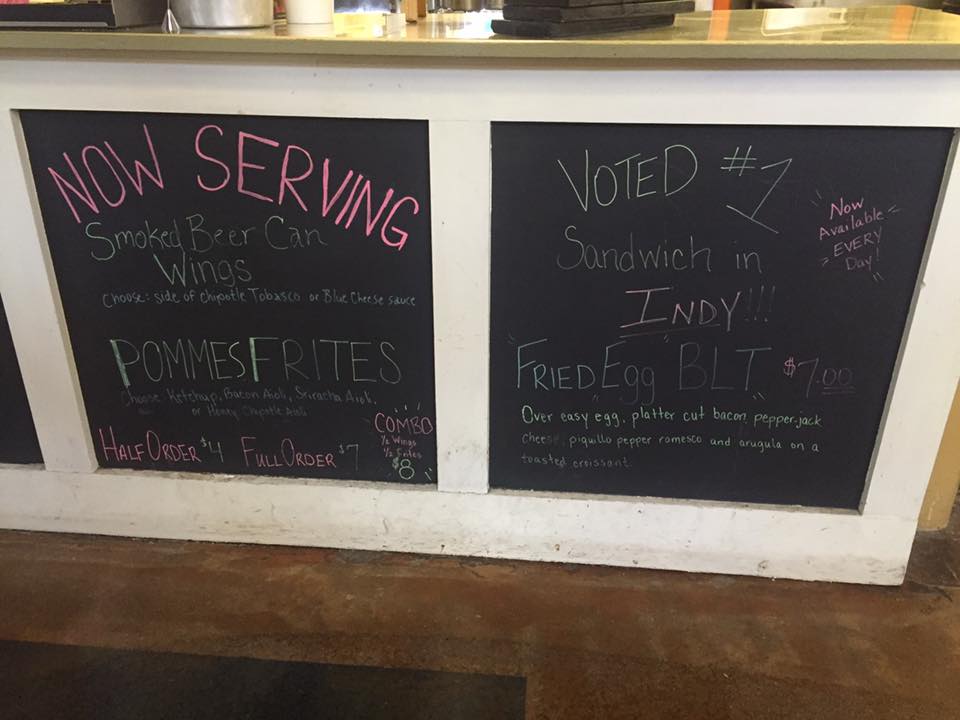 NOW SERVING
Smoked Beer Can
Wings
Choose: side of chipotle Tobasco or Blue Cheese sauce
POMMES FRITES
Choose Ketchup, Bacon Aioli, Sriracha Aioli,
or Honey Chipotle Aioli
HALF ORDER $4 FULL ORDER $7
COMBO
1/2 Wings
1/2 Frites
$8
VOTED #1
Sandwich in
INDY!!!
"FRIED Egg" BLT $7.00
Over easy egg, platter cut bacon, pepper-jack
cheese, piquillo pepper romesco and arugula on a
toasted croissant.
Now
Available
EVERY
Day!